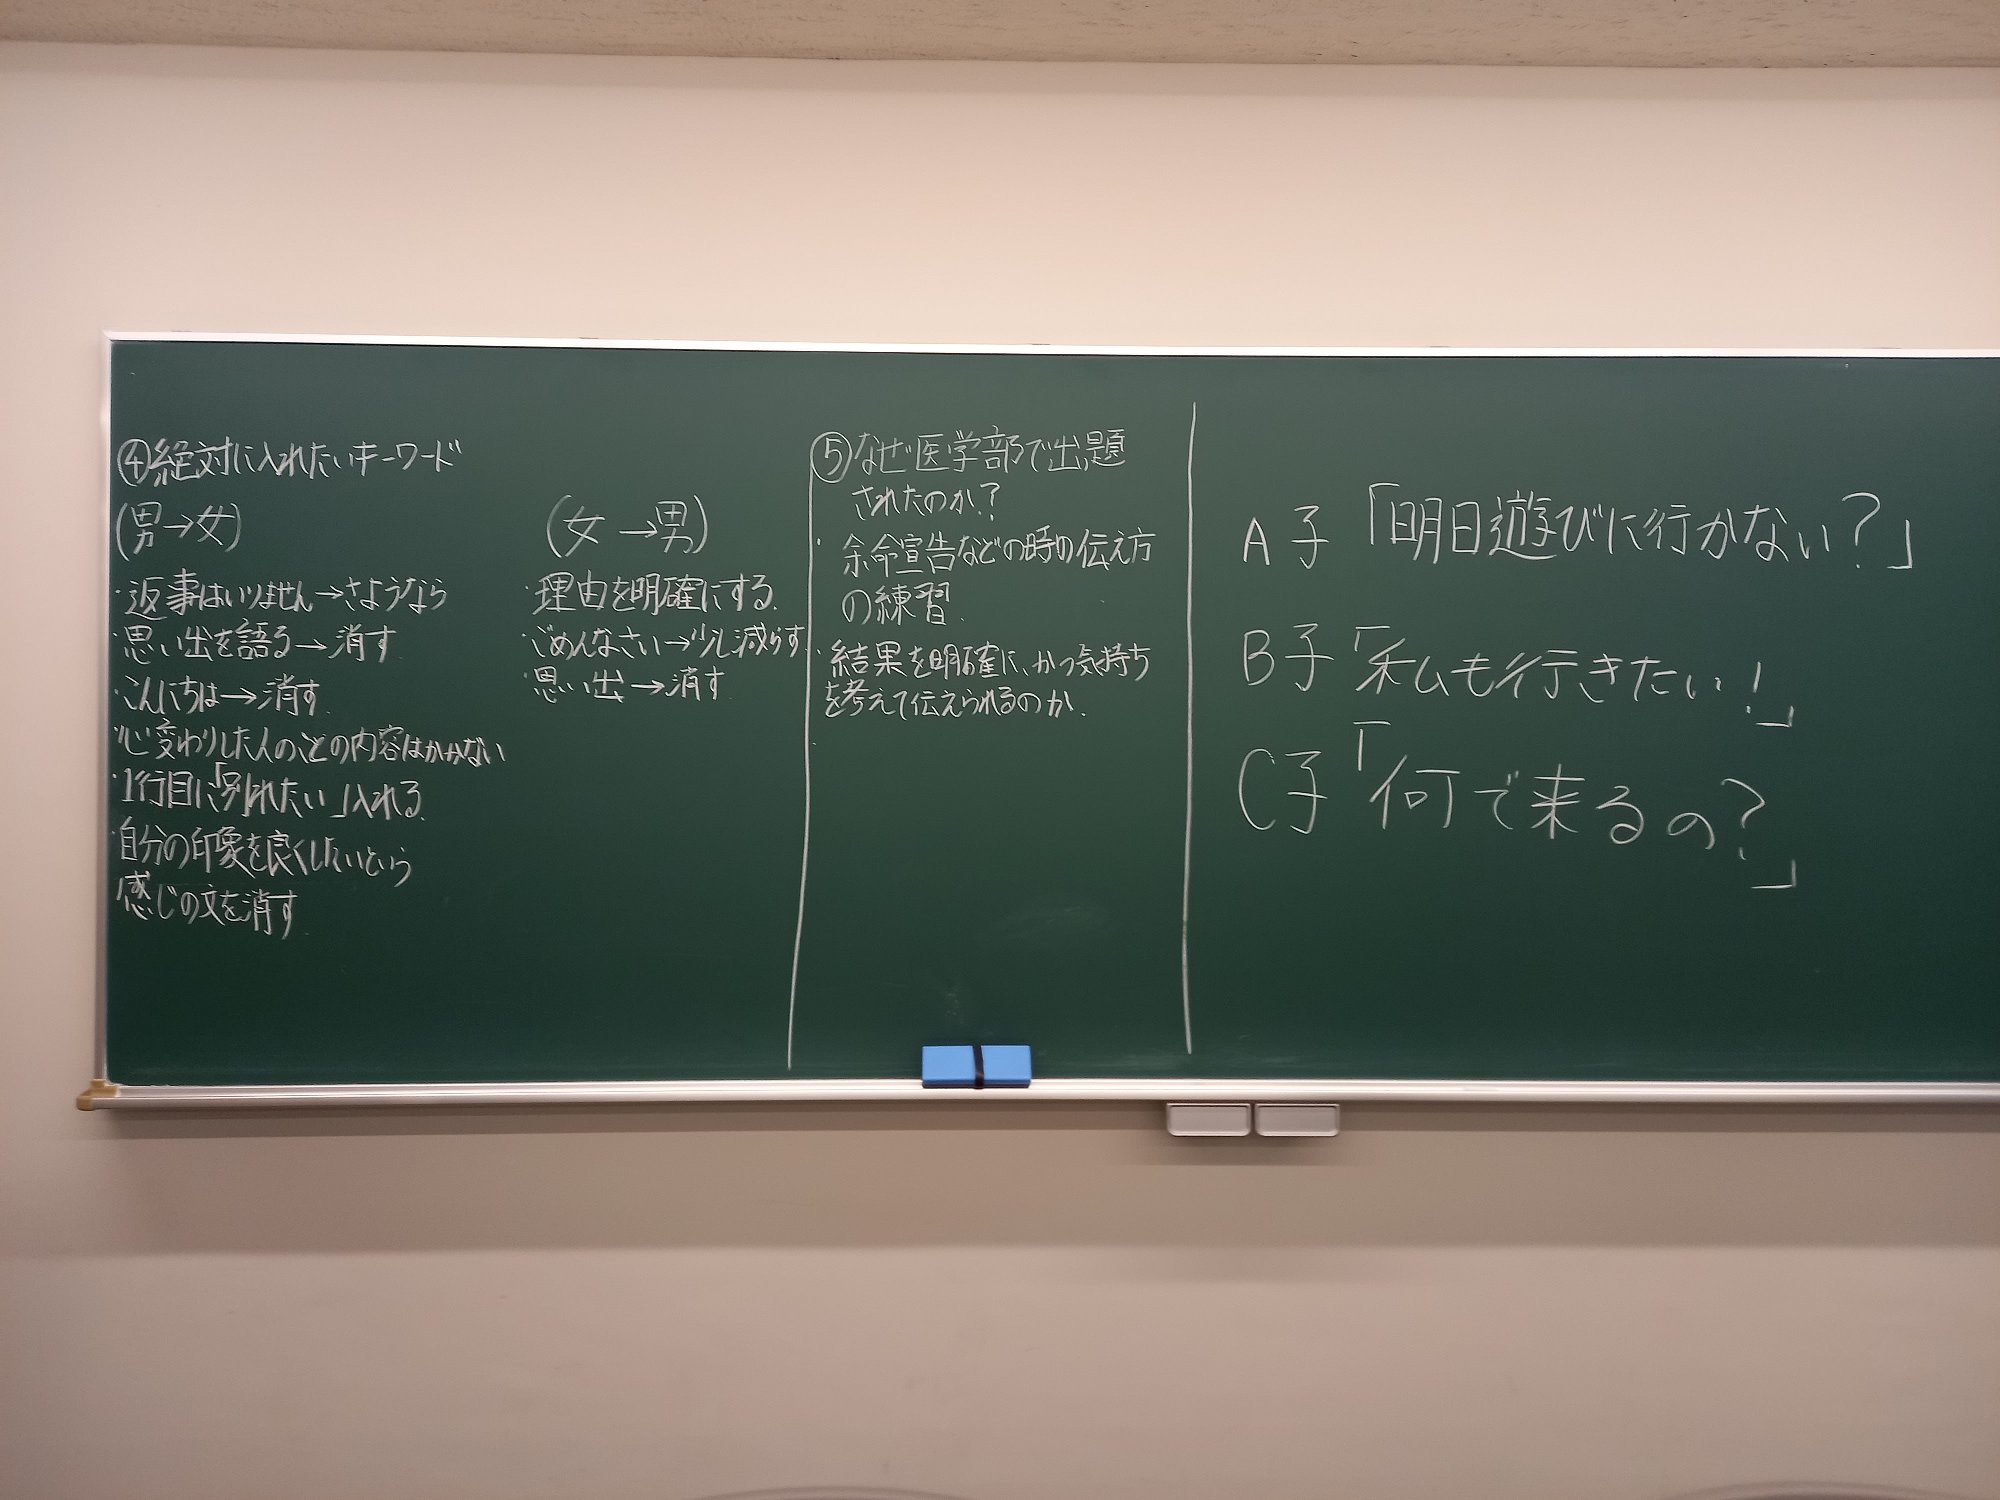 ④絶対に入れたいキーワード
(男→女)
・返事はいりません→さようなら
・思い出を語る→消す
・こんにちは→消す.
・心変わりした人のことの内容はかかない
・1行目に「別れたい」入れる.
・自分の印象を良くしたいという
感じの文を消す.
(女→男)
・理由を明確にする.
・ごめんなさい→少し減らす.
・思い出→消す.
⑤なぜ医学部で出題
されたのか?
・余命宣告などの時の伝え方
の練習.
・結果を明確に、かつ気持ち
を考えて伝えられるのか.
A子「明日遊びに行かない?」
B子「私も行きたい!」
C子「何で来るの?」